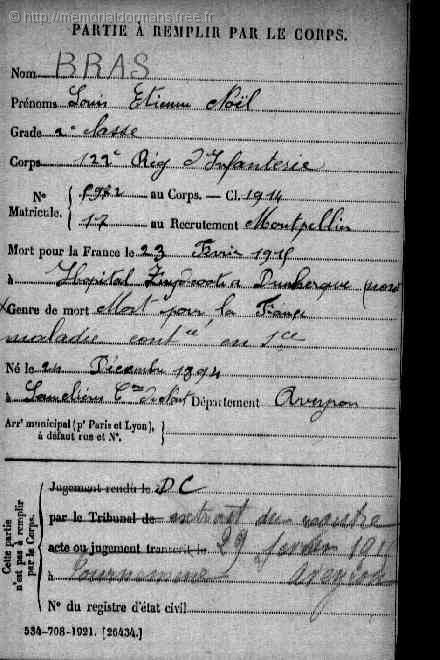 http://memorialdormans.free.fr
PARTIE À REMPLIR PAR LE CORPS.
Nom BRAS
Prénoms Louis Etienne Noël
Grade 2e classe
Corps 122e Rég d'Infanterie
N° Matricule. { au Corps. — Cl. 1914
17 au Recrutement Montpellier
Mort pour la France le 23 Février 1915
à Hopital Zuydcoote Dunkerque (nord
Genre de mort Mort pour la France
maladie contée en sce
Né le 24 Décembre 1894
à Département Aveyron
Arr' municipal (p' Paris et Lyon), à défaut rue et N°.
Cette partie n'est pas à remplir par le Corps.
Jugement rendu le DC
par le Tribunal de extrait du registre
acte ou jugement transcrit le 29 janvier
à Cournamine Aveyron
N° du registre d'état civil
534-708-1921. [26434.]